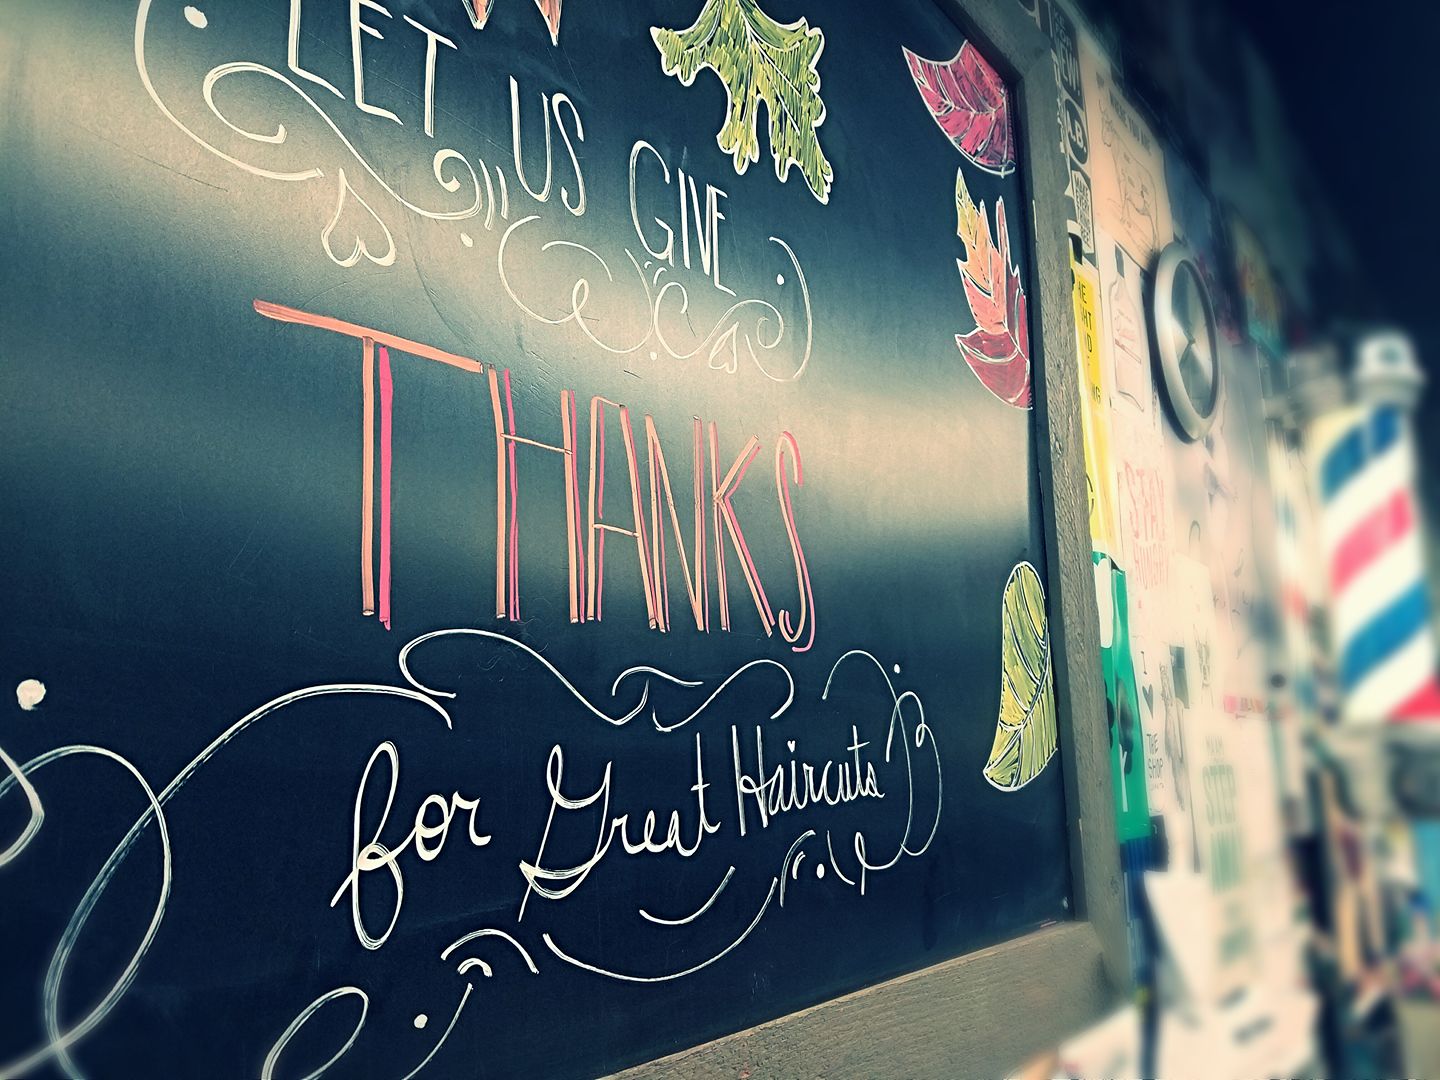 LET
US
GIVE
THANKS
for Great Haircuts
STAY
HUNGRY
I ♥
THE
SHOP